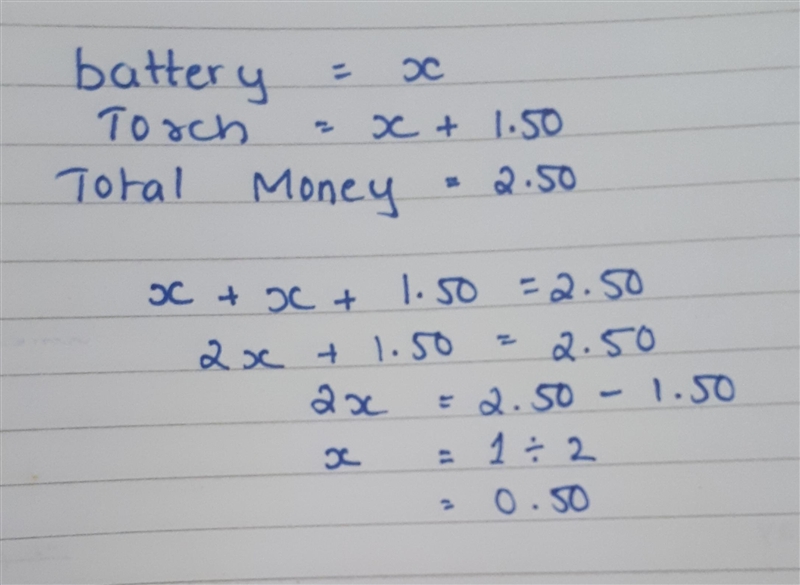 battery = x
Torch = x + 1.50
Total Money = 2.50
x + x + 1.50 = 2.50
2x + 1.50 = 2.50
2x = 2.50 - 1.50
x = 1 ÷ 2
= 0.50